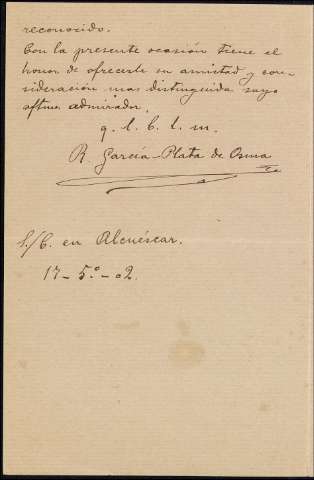 reconocido.
Con la presente ocasión tiene el
honor de ofrecerle su amistad y con-
sideración mas distinguida suyo
affmo admirador,
q. l. b. l. m.
R. García-Plata de Osma
S./C. en Alcuéscar.
17-5º-02.